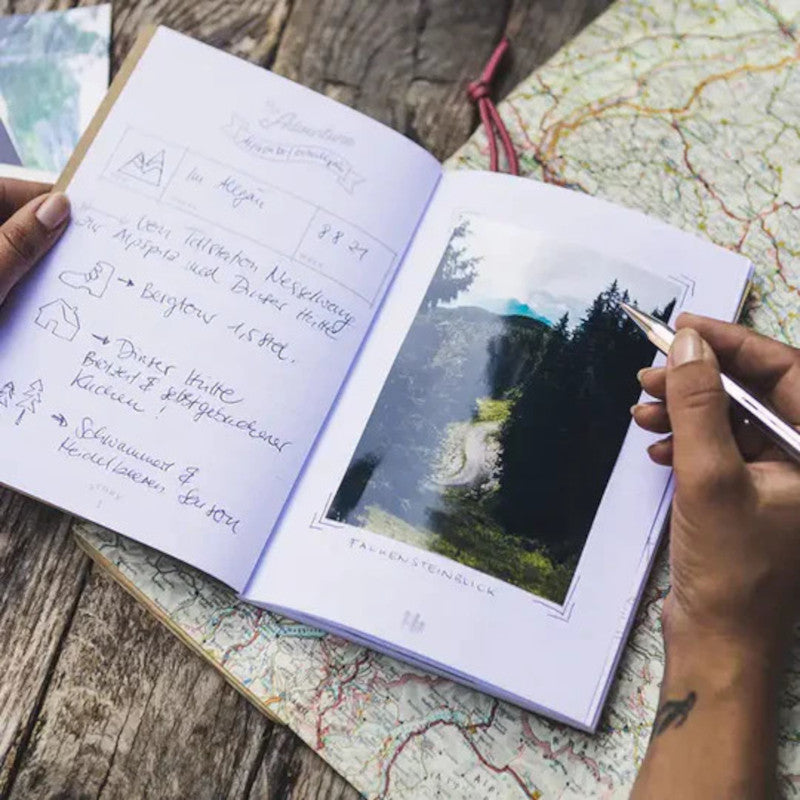 Adventure
Im Allgäu
8 8 21
Von Talstation Nesselwang
zur Alpspitz und Dinser Hütte
→ Bergtour 1,5 Std.
→ Dinser Hütte
Brotzeit & selbstgebackener
Kuchen!
→ Schwammerl &
Heidelbeeren Saison
STORY
FALKENSTEINBLICK